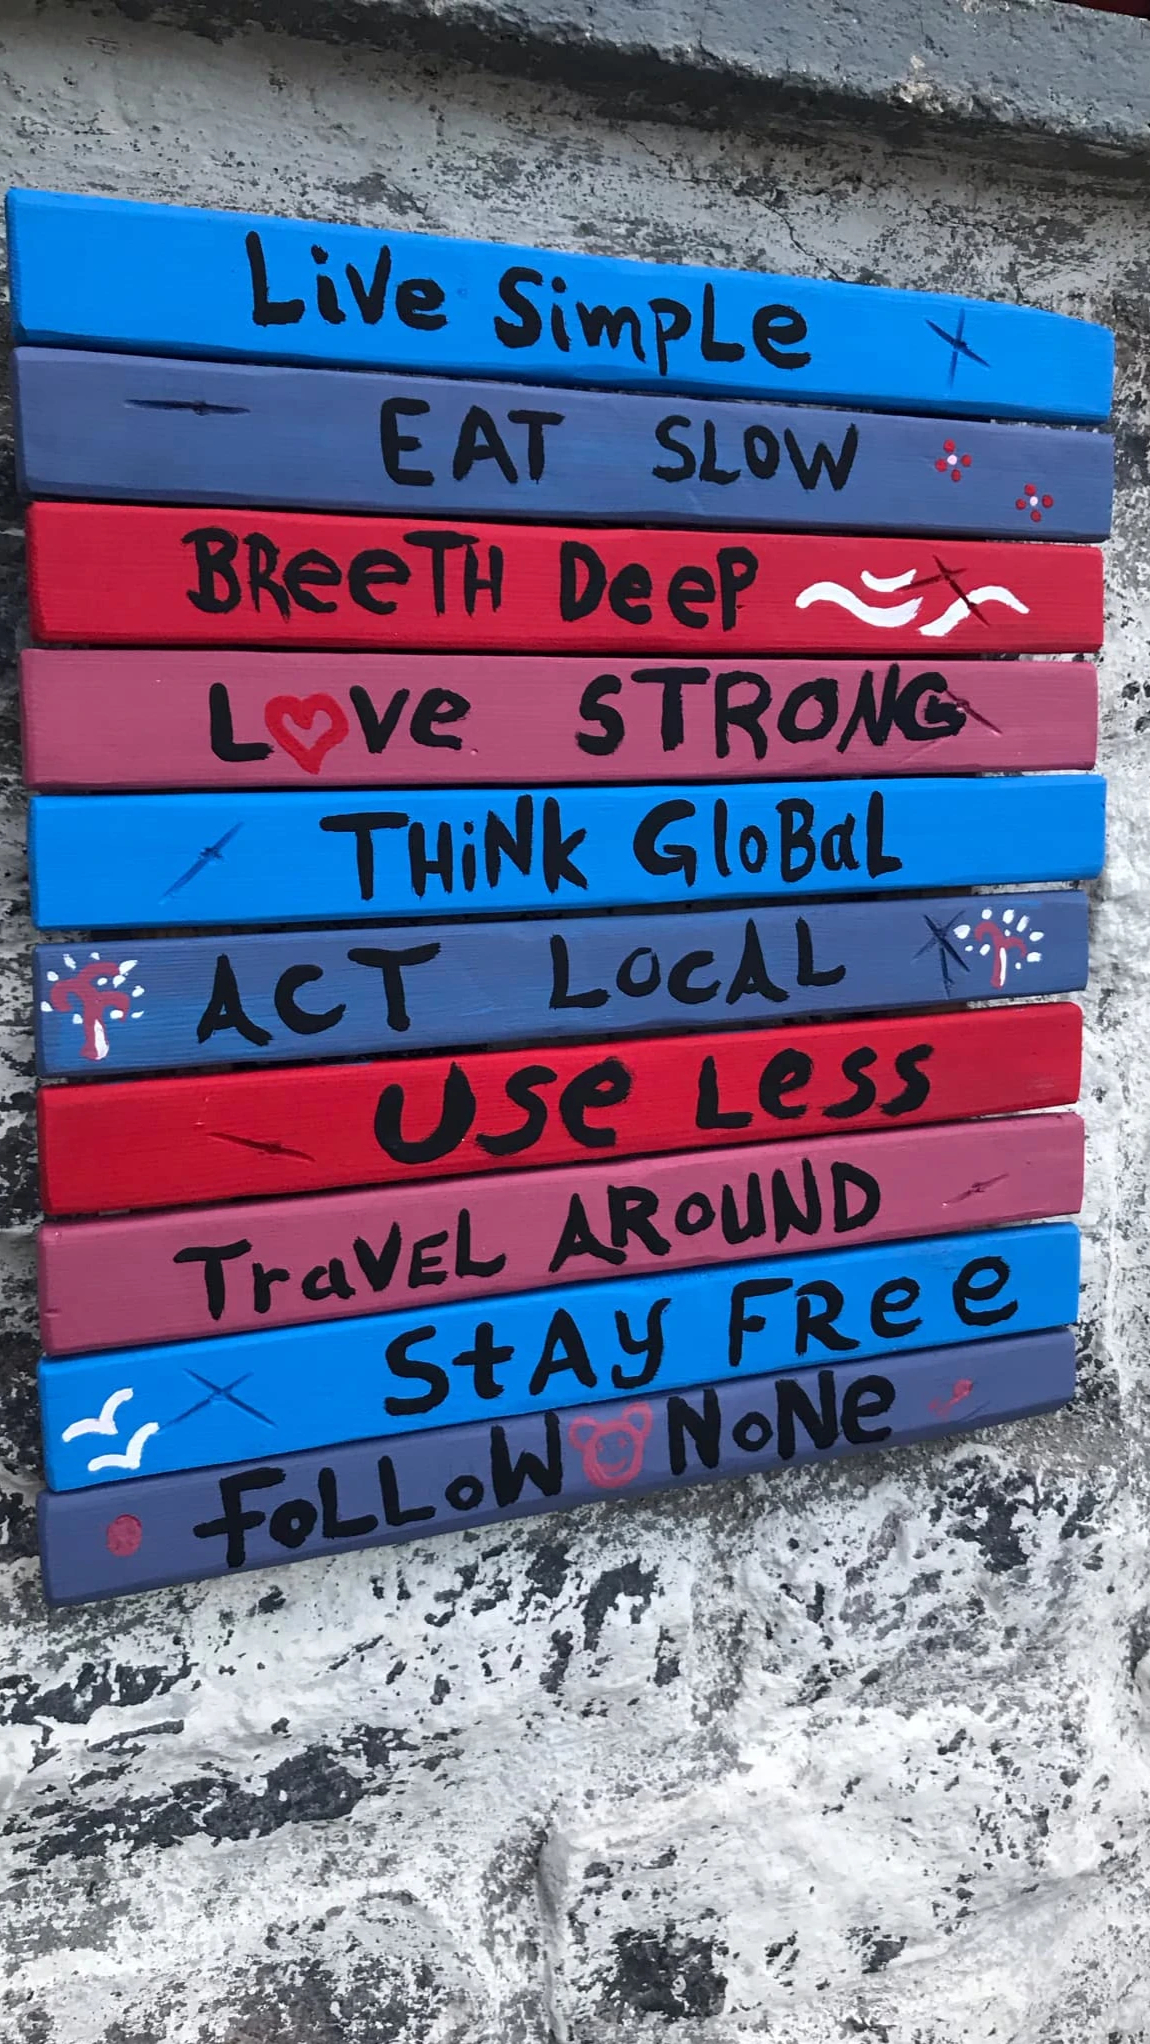 Live Simple
EAT SLOW
BReeTH DeeP
Love STRONG
THiNk GloBaL
ACT LOCAL
Use Less
TraVEL AROUND
StAy FRee
FoLLoW NoNe